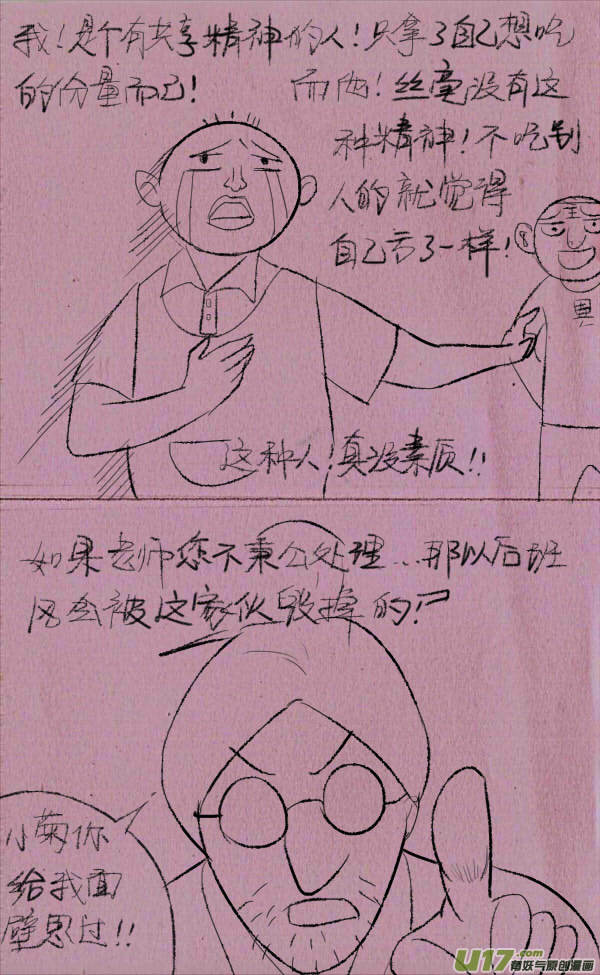 我!是个有共享精神的人!只拿了自己想吃
的份量而已!
而西!丝毫没有这
种精神!不吃别
人的就觉得
自己亏了一样!
王
異
这种人!真没素质!!
如果老师您不秉公处理...那以后班
风会被这家伙毁掉的!?
小菊你
给我面
壁思过!!
U17.com
有妖气原创漫画